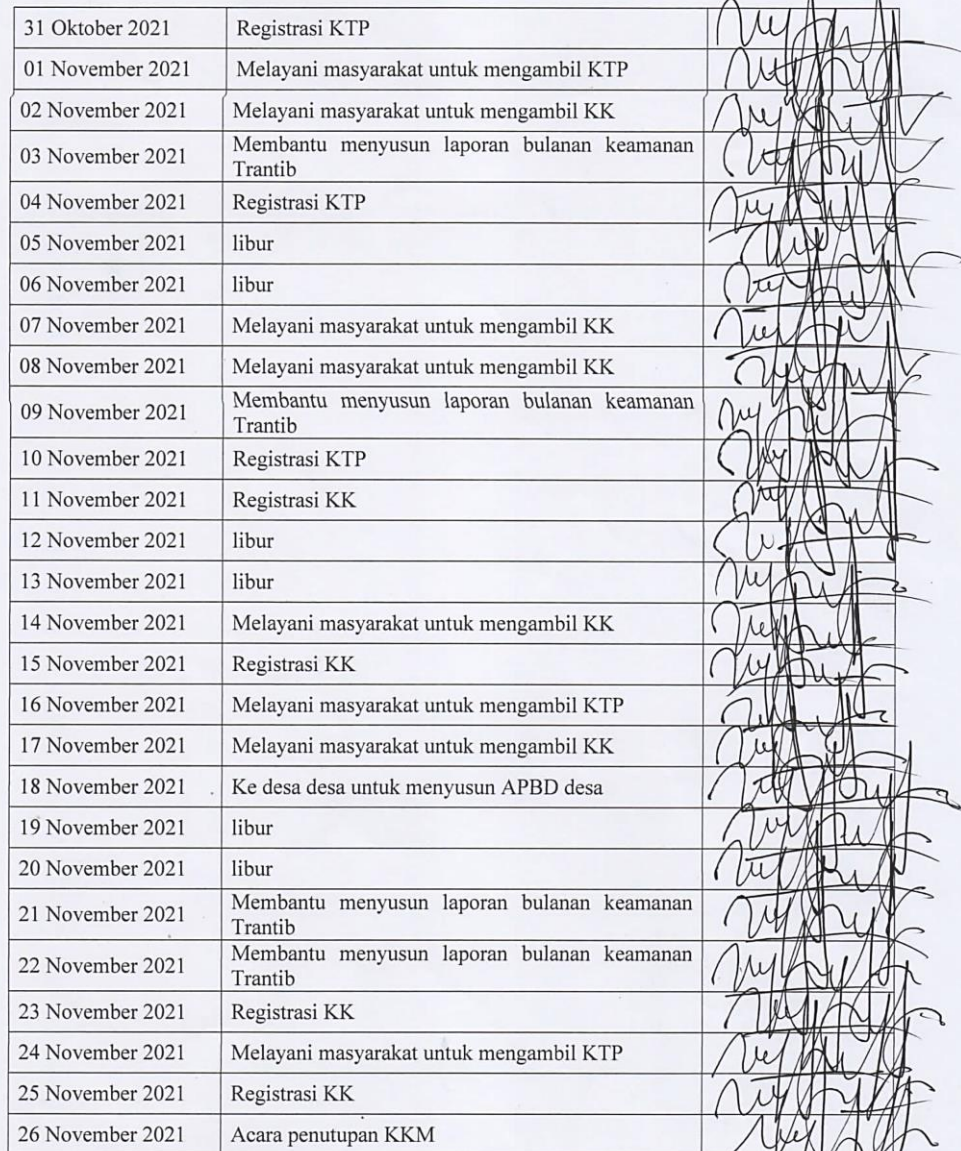 31 Oktober 2021 Registrasi KTP
01 November 2021 Melayani masyarakat untuk mengambil KTP
02 November 2021 Melayani masyarakat untuk mengambil KK
03 November 2021 Membantu menyusun laporan bulanan keamanan
Trantib
04 November 2021 Registrasi KTP
05 November 2021 libur
06 November 2021 libur
07 November 2021 Melayani masyarakat untuk mengambil KK
08 November 2021 Melayani masyarakat untuk mengambil KK
09 November 2021 Membantu menyusun laporan bulanan keamanan
Trantib
10 November 2021 Registrasi KTP
11 November 2021 Registrasi KK
12 November 2021 libur
13 November 2021 libur
14 November 2021 Melayani masyarakat untuk mengambil KK
15 November 2021 Registrasi KK
16 November 2021 Melayani masyarakat untuk mengambil KTP
17 November 2021 Melayani masyarakat untuk mengambil KK
18 November 2021 Ke desa desa untuk menyusun APBD desa
19 November 2021 libur
20 November 2021 libur
21 November 2021 Membantu menyusun laporan bulanan keamanan
Trantib
22 November 2021 Membantu menyusun laporan bulanan keamanan
Trantib
23 November 2021 Registrasi KK
24 November 2021 Melayani masyarakat untuk mengambil KTP
25 November 2021 Registrasi KK
26 November 2021 Acara penutupan KKM